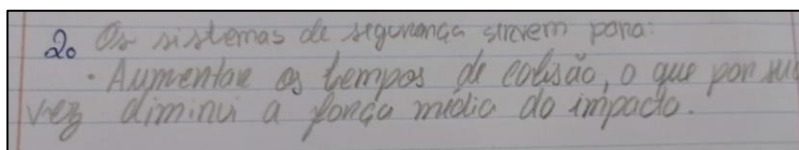 2. Os sistemas de segurança servem para:
• Aumentar os tempos de colisão, o que por sua
vez diminui a força média do impacto.